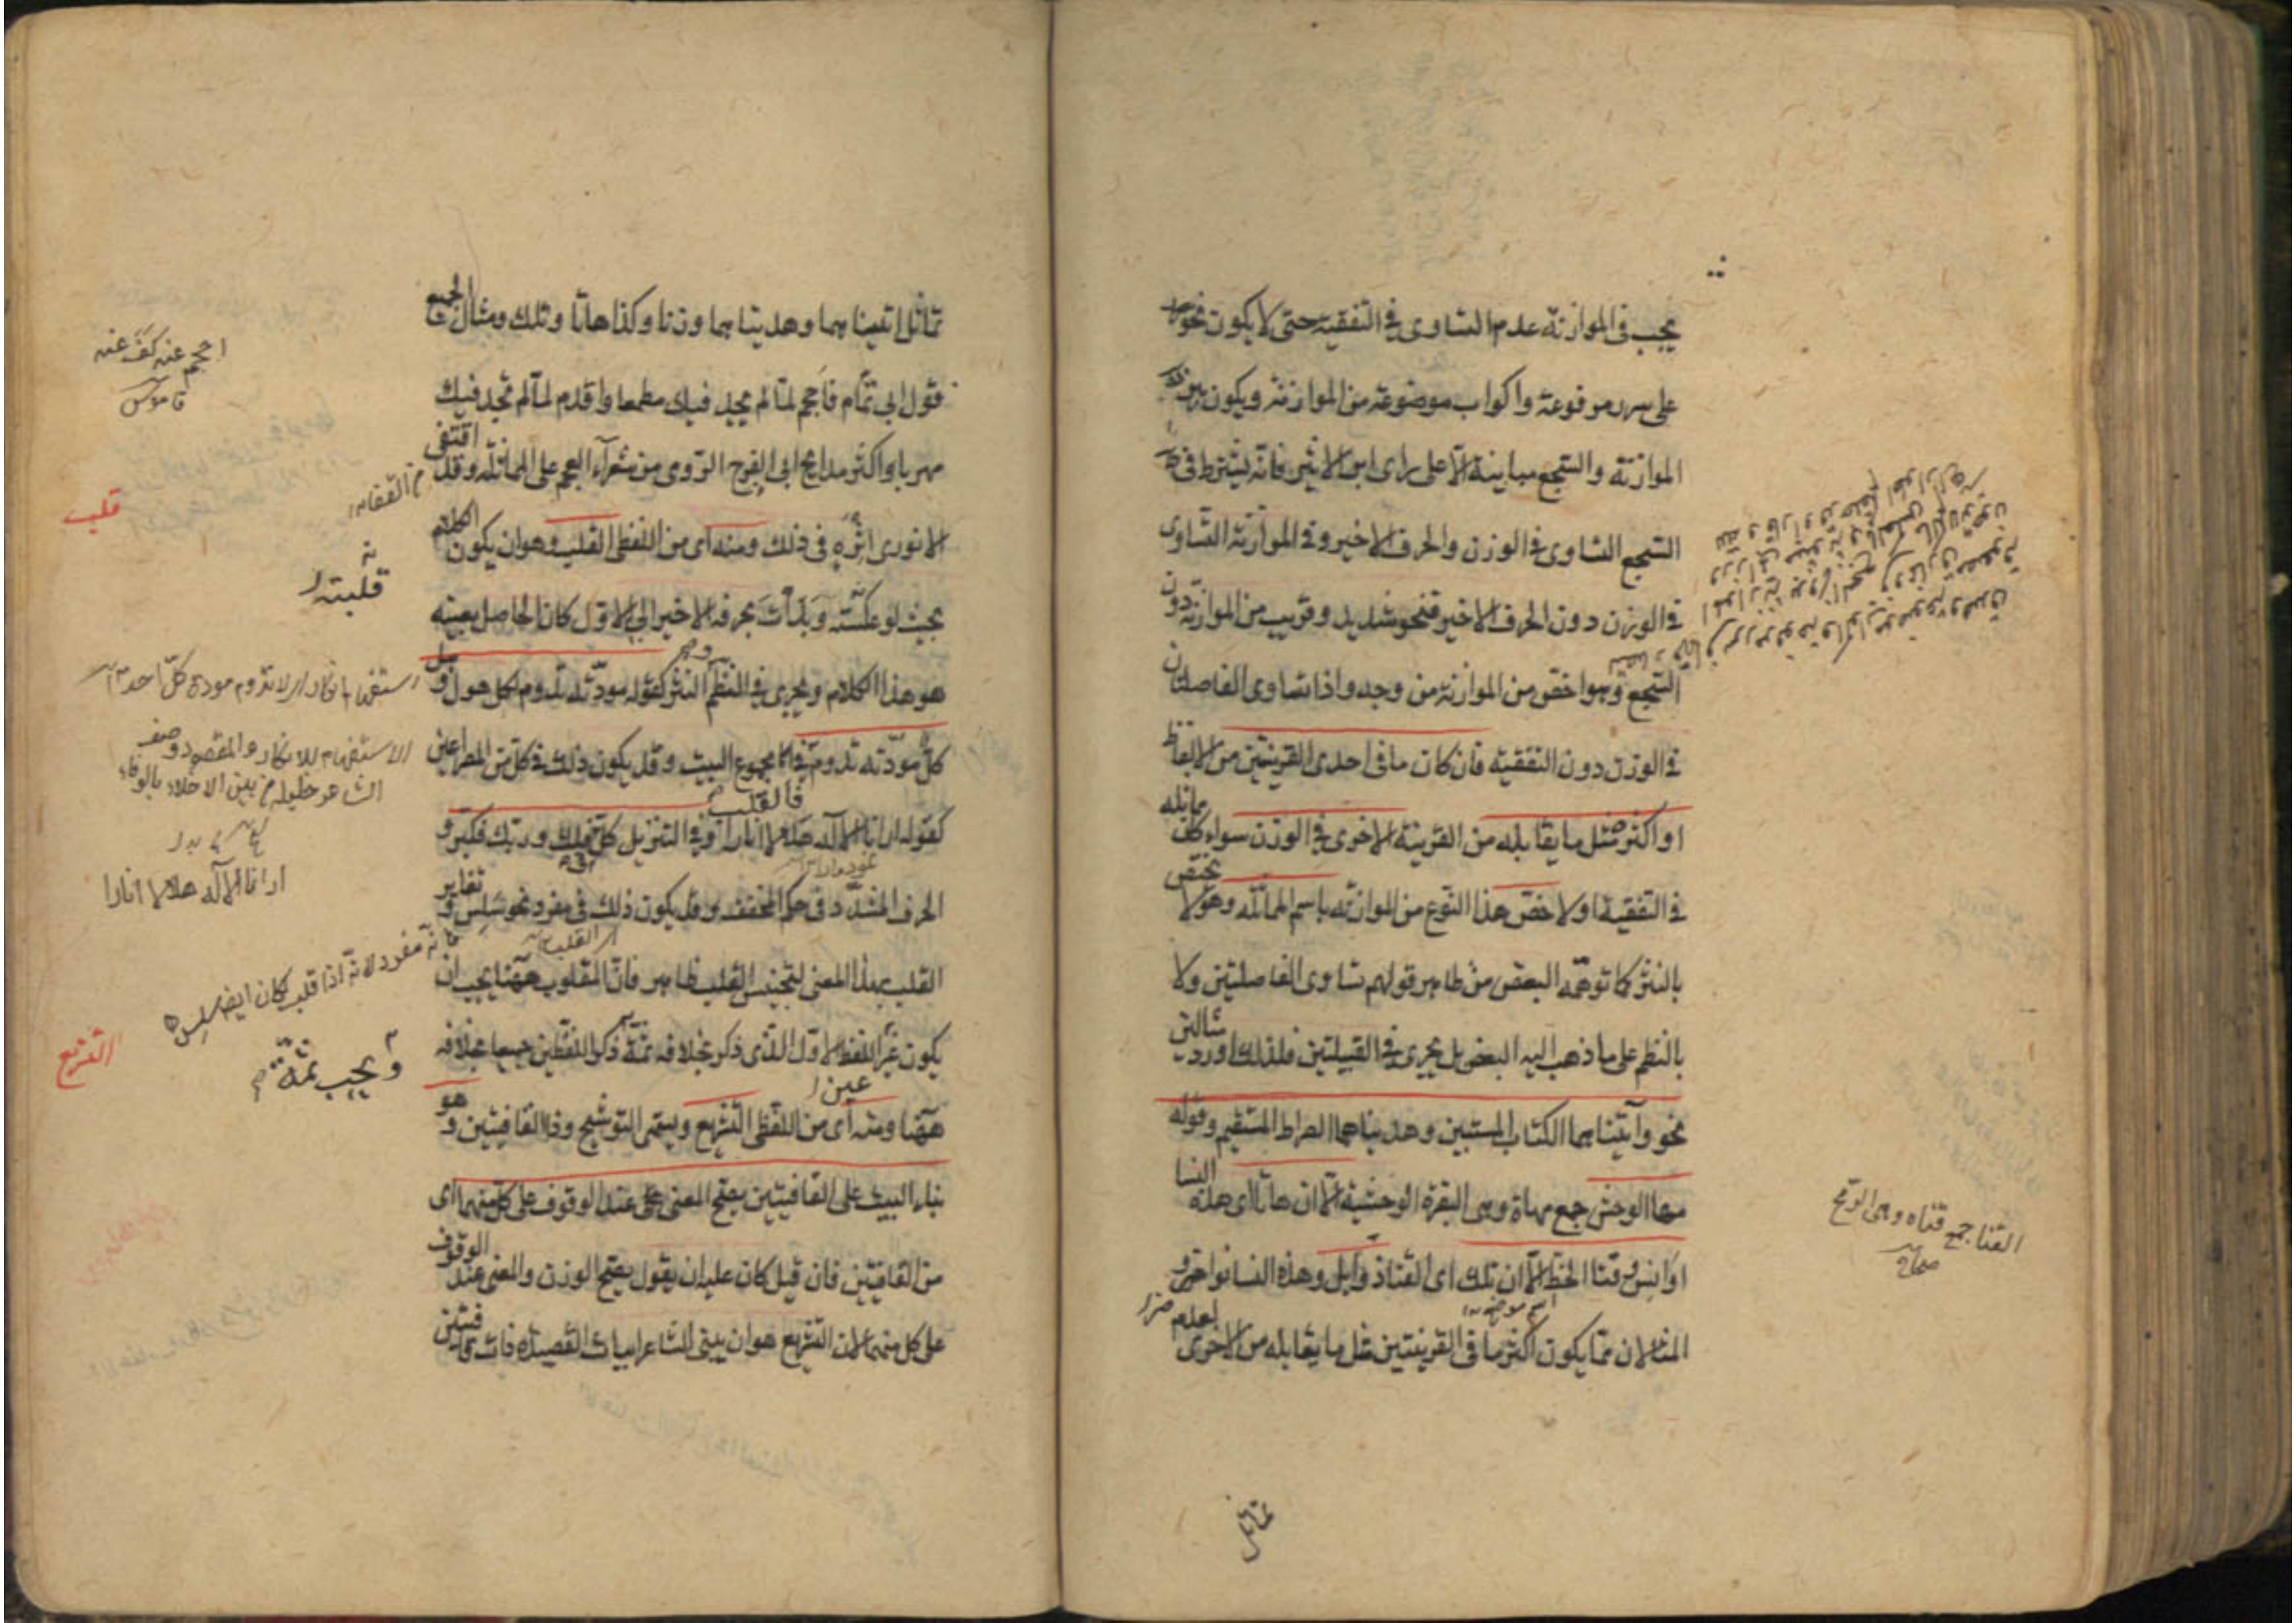 يجب في الموازنة عدم التساوى في التقفية حتى لا يكون نحو سرر
على سرر مرفوعة واكواب موضوعة من الموازنة ويكون بين
الموازنة والسجع مباينة الا على راى ابن الاثير فانه يشترط في
السجع التساوى في الوزن والحرف الاخير وفي الموازنة التساوى
في الوزن دون الحرف الاخير فنحو شديد وقريب من الموازنة دون
السجع وهو اخص من الموازنة من وجه واذا تساوى الفاصلتان
في الوزن دون التقفية فان كان ما في احدى القرينتين من الالفاظ
او اكثره مثل ما يقابله من القرينة الاخرى في الوزن سواء كان يماثله
في التقفية اولا خص هذا النوع من الموازنة باسم المماثلة وهو لا يختص
بالنثر كما توهمه البعض من ظاهر قولهم تساوى الفاصلتين ولا
بالنظم على ما ذهب اليه البعض بل يجرى في القبيلتين فلذلك اورد مثالين
نحو وآتيناهما الكتاب المستبين وهديناهما الصراط المستقيم وقوله
مها الوحش جمع مهاة وهى البقرة الوحشية الا ان هاتا اى هذه النسا
اوانس قنا الخط الا ان تلك اى القناة ذوابل وهذه النسا نواضر و
المثالان مما يكون اكثر ما في القرينتين مثل ما يقابله من الاخرى لعدم
القنا جمع قناه وهى الرمح
صحاح
تماثل
تماثل آتيناهما وهديناهما وزنا وكذا هاتا وتلك ومثال الجميع
قول ابى تمام فاحجم لما لم يجد فيك مطمعا واقدم لما لم يجد فيك
مهربا واكثر مدايح ابى الفرج الرومى من شعرآء العجم على المماثلة وقد اقتفى
الانورى اثره في ذلك ومنه اى من اللفظى القلب وهو ان يكون الكلام
بحيث لو عكسته وبدأت بحرفه الاخير الى الاول كان الحاصل بعينه
هو هذا الكلام ويجرى في النظم والنثر كقوله مودته تدوم لكل هول وهل
كل مودته تدوم في مجموع البيت وقد يكون ذلك في كل من المصراعين
كقوله ارانا الاله هلالا انارا وفي التنزيل كل في فلك وربك فكبر و
الحرف المشدد في حكم المخفف وقد يكون ذلك في مفرد نحو سلس و تغاير
القلب بهذا المعنى لتجنيس القلب ظاهر فان المقلوب ههنا يجب ان
يكون عين اللفظ الاول الذى ذكر بخلافه ثمة ذكر اللفظين جميعا بخلافه
ههنا ومنه اى من اللفظى التشريع ويسمى التوشيح وذا القافيتين و هو
بناء البيت على القافيتين يصح المعنى عند الوقوف على كل منهما اى
من القافيتين فان قيل كان عليه ان يقول يصح الوزن والمعنى عند الوقوف
على كل منهما لان التشريع هو ان يبنى الشاعر ابيات القصيدة ذات قافيتين
احجم عنه كف عنه
قاموس
قلب
قلبته
الاستفهام للانكار والمقصود وصف
الشاعر خليله من بين الاخلاء بالوفاء
ارانا الاله هلالا انارا
فانه مفرد لانه اذا قلب كان ايضا سلس
ويجب ثمة
التشريع